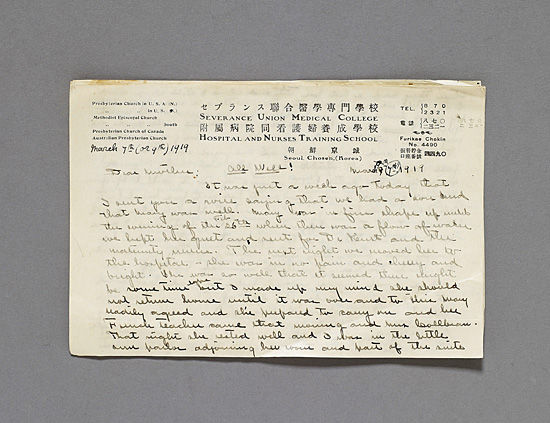 Presbyterian Church in U. S. A. (N.)
in U. S. (S.)
Methodist Episcopal Church
South
Presbyterian Church of Canada
Australian Presbyterian Church
セブランス聯合醫學專門學校
SEVERANCE UNION MEDICAL COLLEGE
附屬病院同看護婦養成學校
HOSPITAL AND NURSES TRAINING SCHOOL
朝鮮京城
Seoul, Chosen, (Korea)
TEL. 870
2321
Furikae Chokin
No. 4490
March 7th (or 9th) 1919
1919
Dear Mother: All Well!
It was just a week ago today that
I sent you a wire saying that we had a son and
that Mary was well. Mary was in fine shape up until
the evening of the 26th when there was a flow of water
we kept her quiet and sent for Dr and the
maternity nurse. The next night we moved her to
the hospital - she was in no pain and cheery and
bright. She was so well that it seemed there might
be some time but I made up my mind she should
not return home until it was over and to this Mary
readily agreed and she prepared to carry on and her
French teacher came that morning and Mrs
That night she rested well and I was in the little
sun parlor adjoining her room and part of the suite